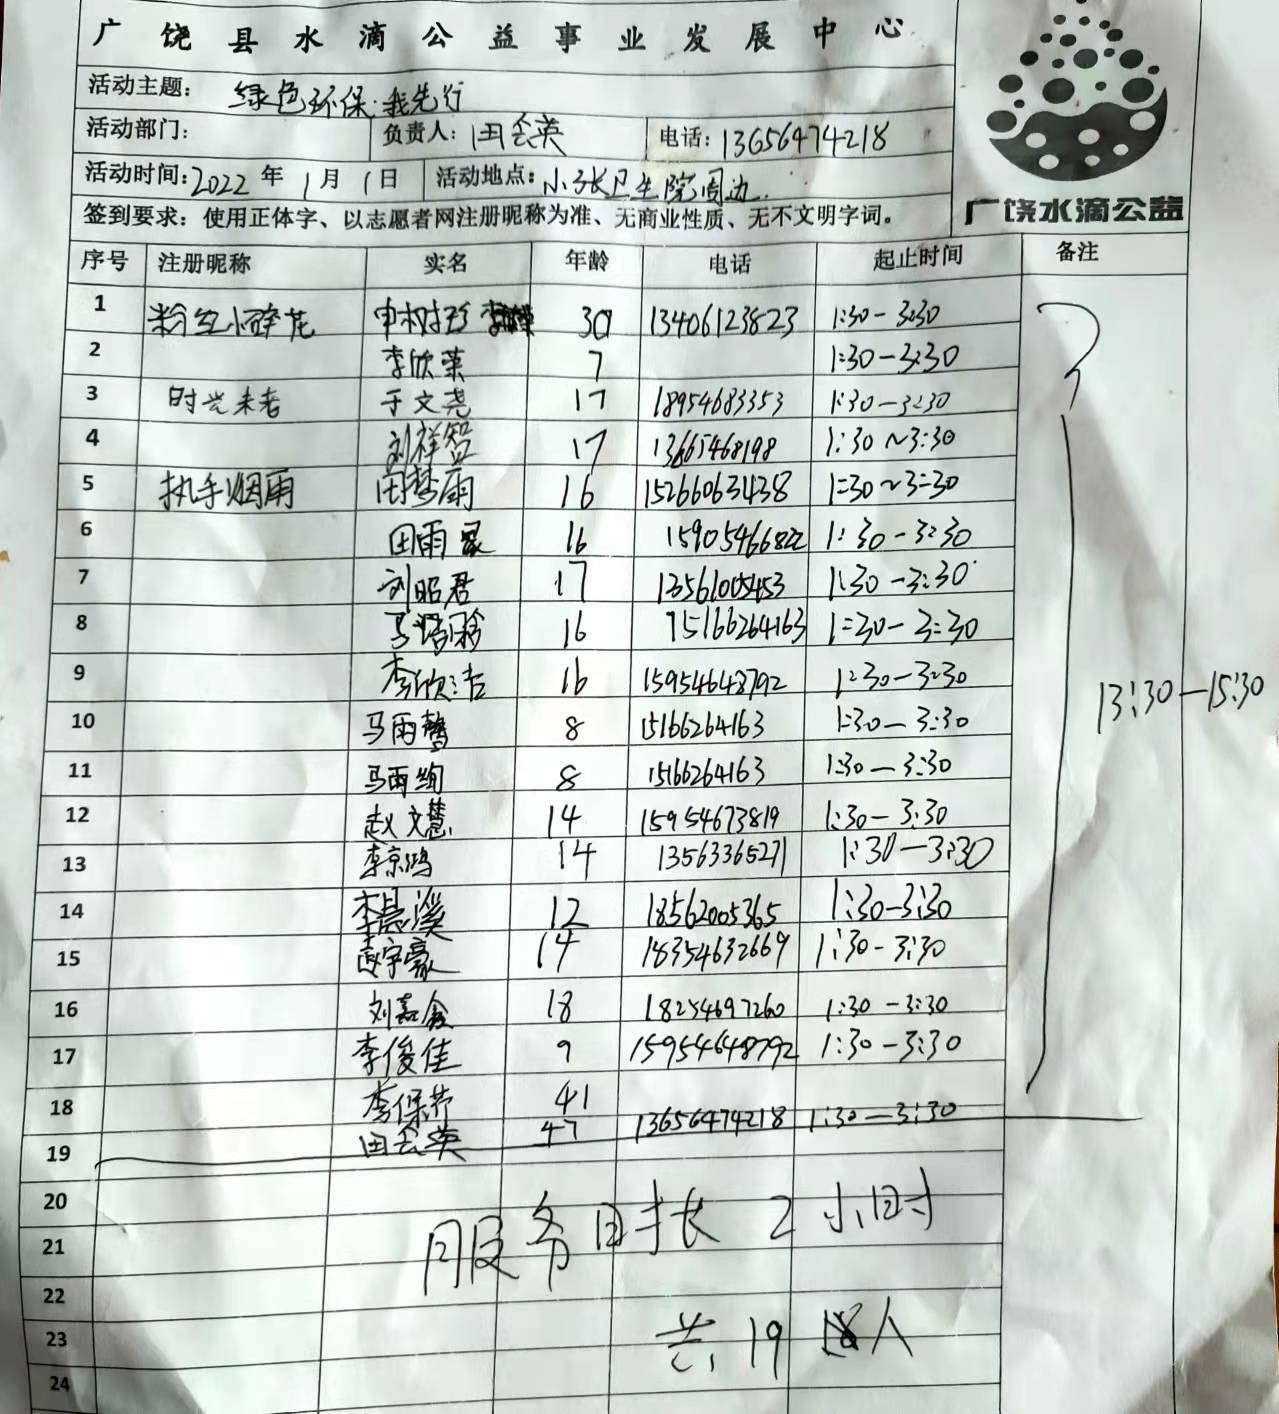 广饶县水滴公益事业发展中心
活动主题: 绿色环保·我先行
活动部门: 负责人: 田会英 电话: 13656474218
活动时间: 2022 年 1月 1日 活动地点: 小张卫生院周边
签到要求: 使用正体字、以志愿者网注册昵称为准、无商业性质、无不文明字词。
广饶水滴公益
序号 注册昵称 实名 年龄 电话 起止时间 备注
1 申树珍 30 13406123823 1:30-3:30
2 李欣荣 7 1:30-3:30
3 时光未老 于文尧 17 18954683353 1:30-3:30
4 刘祥智 17 1:30~3:30
5 执手烟雨 田梦雨 16 15266063438 1:30~3:30
6 田雨 16 15905466822 1:30-3:30
7 刘昭君 17 13561005453 1:30-3:30
8 马 16 15166264163 1:30-3:30
9 李欣洁 16 15954648792 1:30-3:30
13:30-15:30
10 马雨馨 8 15166264163 1:30-3:30
11 马雨绚 8 15166264163 1:30-3:30
12 赵文慧 14 15954673819 1:30-3:30
13 李京鸿 14 13563365271 1:30-3:30
14 李晨溪 12 18562005365 1:30-3:30
15 赵宇豪 14 18354632669 1:30-3:30
16 刘嘉鑫 18 18254697260 1:30-3:30
17 李俊佳 9 15954648792 1:30-3:30
18 李保芹 41
19 田会英 47 13656474218 1:30-3:30
20
服务时长 2 小时
21
22
23 共 19 人
24